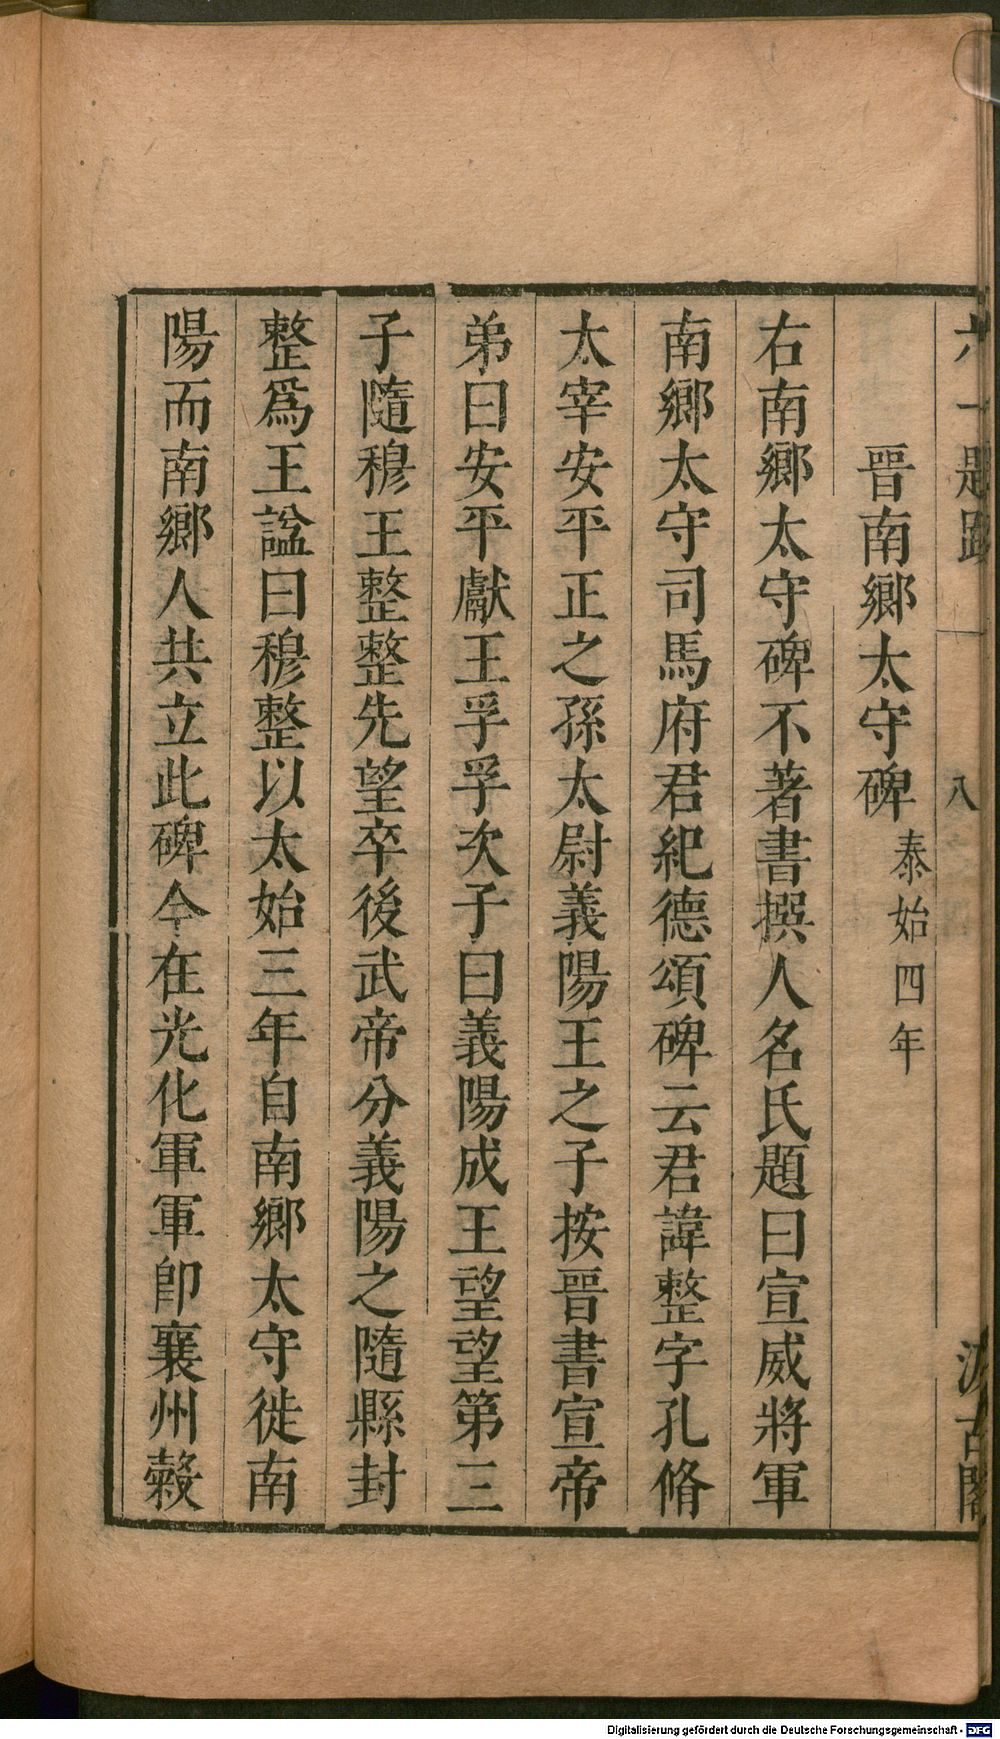 六一題跋
八
汲古閣
晉南鄉太守碑 泰始四年
右南鄉太守碑不著書撰人名氏題曰宣威將軍
南鄉太守司馬府君紀德頌碑云君諱整字孔脩
太宰安平正之孫太尉義陽王之子按晉書宣帝
弟曰安平獻王孚孚次子曰義陽成王望望第三
子隨穆王整整先望卒後武帝分義陽之隨縣封
整爲王諡曰穆整以太始三年自南鄉太守徙南
陽而南鄉人共立此碑今在光化軍軍卽襄州穀
Digitalisierung gefördert durch die Deutsche Forschungsgemeinschaft - DFG